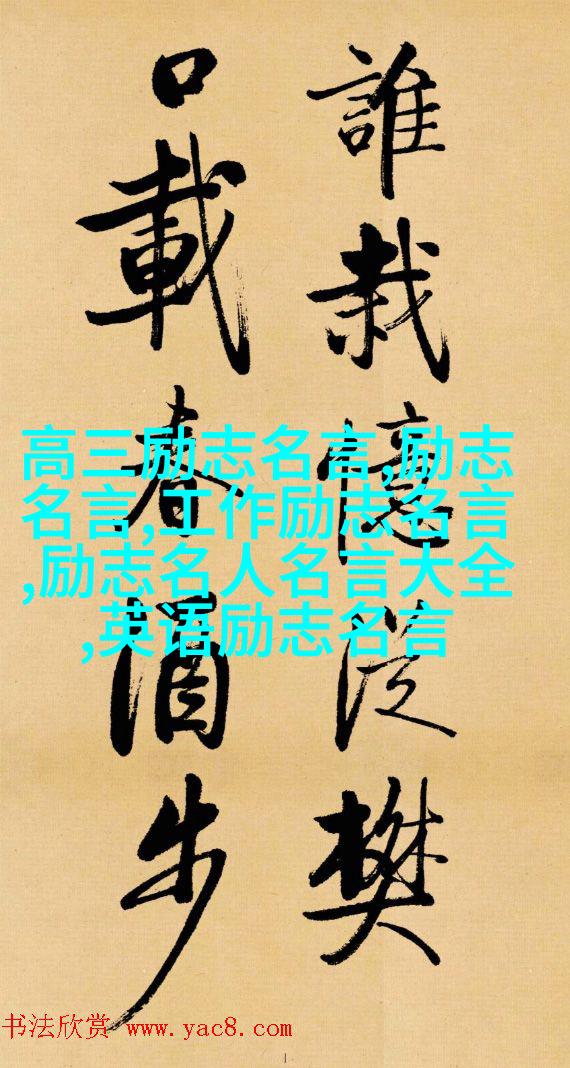 誰栽憶從樊
口載春酒步
高三励志名言,励志
名言,工作励志名言
,励志名人名言大全
,英语励志名言
书法欣赏 www.yac8.com